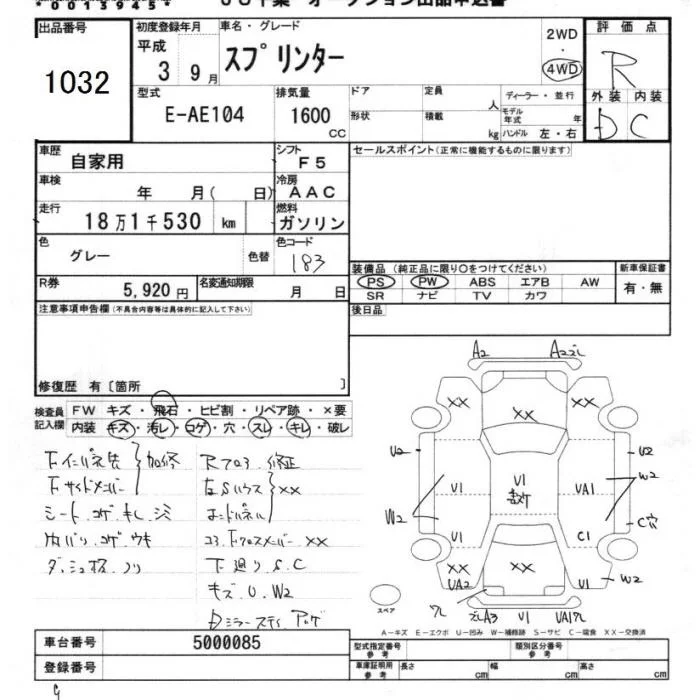 *00139454*
オークション出品申込書
出品番号 初度登録年月 車名・グレード 2WD 評価点
1032 平成 3 9月 スプリンター ・ 4WD R
型式 排気量 ドア 定員 人 ディーラー・並行 外装 内装
E-AE104 1600 CC 形状 積載 kg モデル年式 年 ハンドル 左・右 D C
車歴 自家用 シフト F5 セールスポイント(正常に機能するものに限ります)
車検 年 月( 日) 冷房 AAC
走行 18万1千530 km 燃料 ガソリン
色 グレー 色替 色コード 183
装備品 (純正品に限り〇をつけてください) 新車保証書
R券 5,920円 名変通知期限 月 日
PS PW ABS エアB AW 有・無
SR ナビ TV カワ
注意事項申告欄(不具合内容等は具体的に記入して下さい) 後日品
修復歴 有〔箇所 〕
検査員 FW キズ・飛石・ヒビ割・リペア跡・×要
記入欄 内装 キズ・汚レ・コゲ・穴・スレ・キレ・破レ
A2
XX XX XX
U2 U2
U1 U1 UA1 W2
W2 C穴
U1 C1
XX XX
UA2 U1 W2
A3 U1
スペア
下サイドメンバー
シート コゲ キレ シミ
内バリ コゲ ウキ
XX
下廻り S.C
キズ.U.W2
A-キズ E-エクボ U-凹み W-補修跡 S-サビ C-腐食 XX-交換済
車台番号 5000085 型式指定番号 参考 類別区分番号 参考
登録番号 車庫証明用 参考 長さ cm 幅 cm 高さ cm